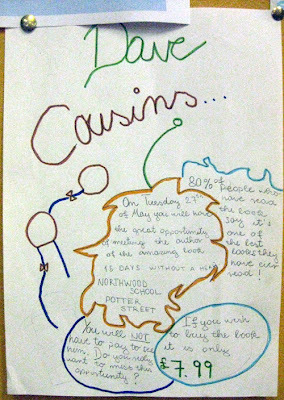 Dave
Cousins...
80% of
people who
have read
the book
say it's
one of
the best
books they
have ever
read!
On Tuesday 27th
of May you will have
the great opportunity
of meeting the author
of the amazing book
15 DAYS WITHOUT A HEAD
NORTHWOOD
SCHOOL
POTTER
STREET
You will NOT
have to pay to see
him. Do you really
want to miss this
opportunity?
If you wish
to buy the book
it is only
£7.99